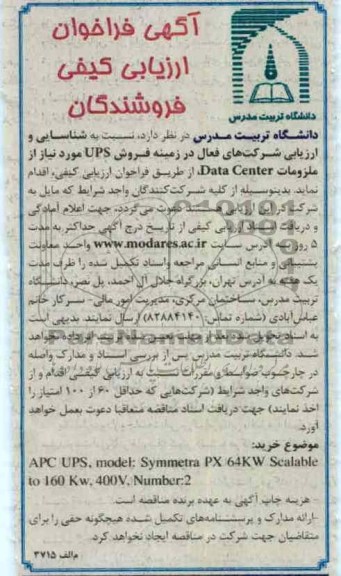 آگهی فراخوان
ارزیابی کیفی
فروشندگان
دانشگاه تربیت مدرس
دانشگاه تربیت مدرس در نظر دارد، نسبت به شناسایی و
ارزیابی شرکت‌های فعال در زمینه فروش UPS مورد نیاز از
ملزومات Data Center، از طریق فراخوان ارزیابی کیفی، اقدام
نماید. بدینوسیله از کلیه شرکت‌کنندگان واجد شرایط که مایل به
شرکت در این ارزیابی هستند دعوت می‌گردد، جهت اعلام آمادگی
و دریافت اسناد ارزیابی کیفی از تاریخ درج آگهی حداکثر به مدت
۵ روز به آدرس سایت www.modares.ac.ir واحد معاونت
پشتیبانی و منابع انسانی مراجعه و اسناد تکمیل شده را ظرف مدت
یک هفته به آدرس تهران، بزرگراه جلال آل احمد، پل نصر، دانشگاه
تربیت مدرس، ساختمان مرکزی، مدیریت امور مالی - سرکار خانم
عباس‌آبادی (شماره تماس: ۸۲۸۸۴۱۴۰) ارسال نمایند. بدیهی است
به اسناد
شد. دانشگاه تربیت مدرس پس از بررسی اسناد و مدارک واصله
در چارچوب ضوابط و مقررات نسبت به ارزیابی کیفی اقدام و از
شرکت‌های واجد شرایط (شرکت‌هایی که حداقل ۶۰ از ۱۰۰ امتیاز را
اخذ نمایند) جهت دریافت اسناد مناقصه متعاقبا دعوت بعمل خواهد
آورد.
موضوع خرید:
APC UPS, model: Symmetra PX 64KW Scalable
to 160 Kw, 400V, Number:2
- هزینه چاپ آگهی به عهده برنده مناقصه است.
-ارائه مدارک و پرسشنامه‌های تکمیل شده هیچگونه حقی را برای
متقاضیان جهت شرکت در مناقصه ایجاد نخواهد کرد.
م/الف ۳۷۱۵